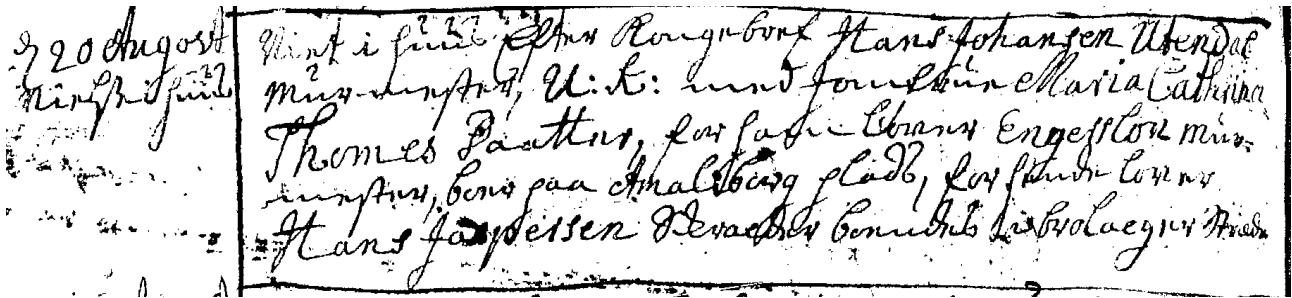 d 20 Augost
Viet i Huus
Viet i Huus Efter Kongebref Hans Johansen Utendal
Muurmester, U: K: med Jomfrue Maria Cathrina
Thomes Paatter, for ham lover Engesslou Muur-
mester, boer paa Amalsborg plads, for hende lover
Hans Jaspersen boendes i brolaeger Stræde